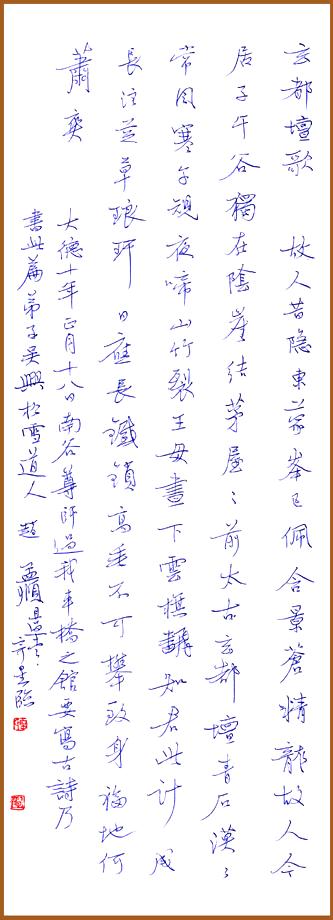 玄都壇歌 故人昔隐東蒙峯已佩含景蒼精龍故人今
居子午谷獨在陰崖結茅屋〻前太古玄都壇青石漠〻
常風寒子規夜啼山竹裂王母晝下雲旗翻知君此計成
長往芝草琅玕日應長鐵鎖高垂不可攀致身福地何
蕭爽 大德十年正月十八日南谷尊師過我車橋之館要寫古詩乃
書此篇弟子吳興松雪道人 趙 孟頫